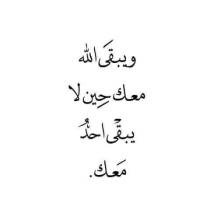 ويبقَى الله
معك حِين لا
يبقّى احدُ
مَعك.